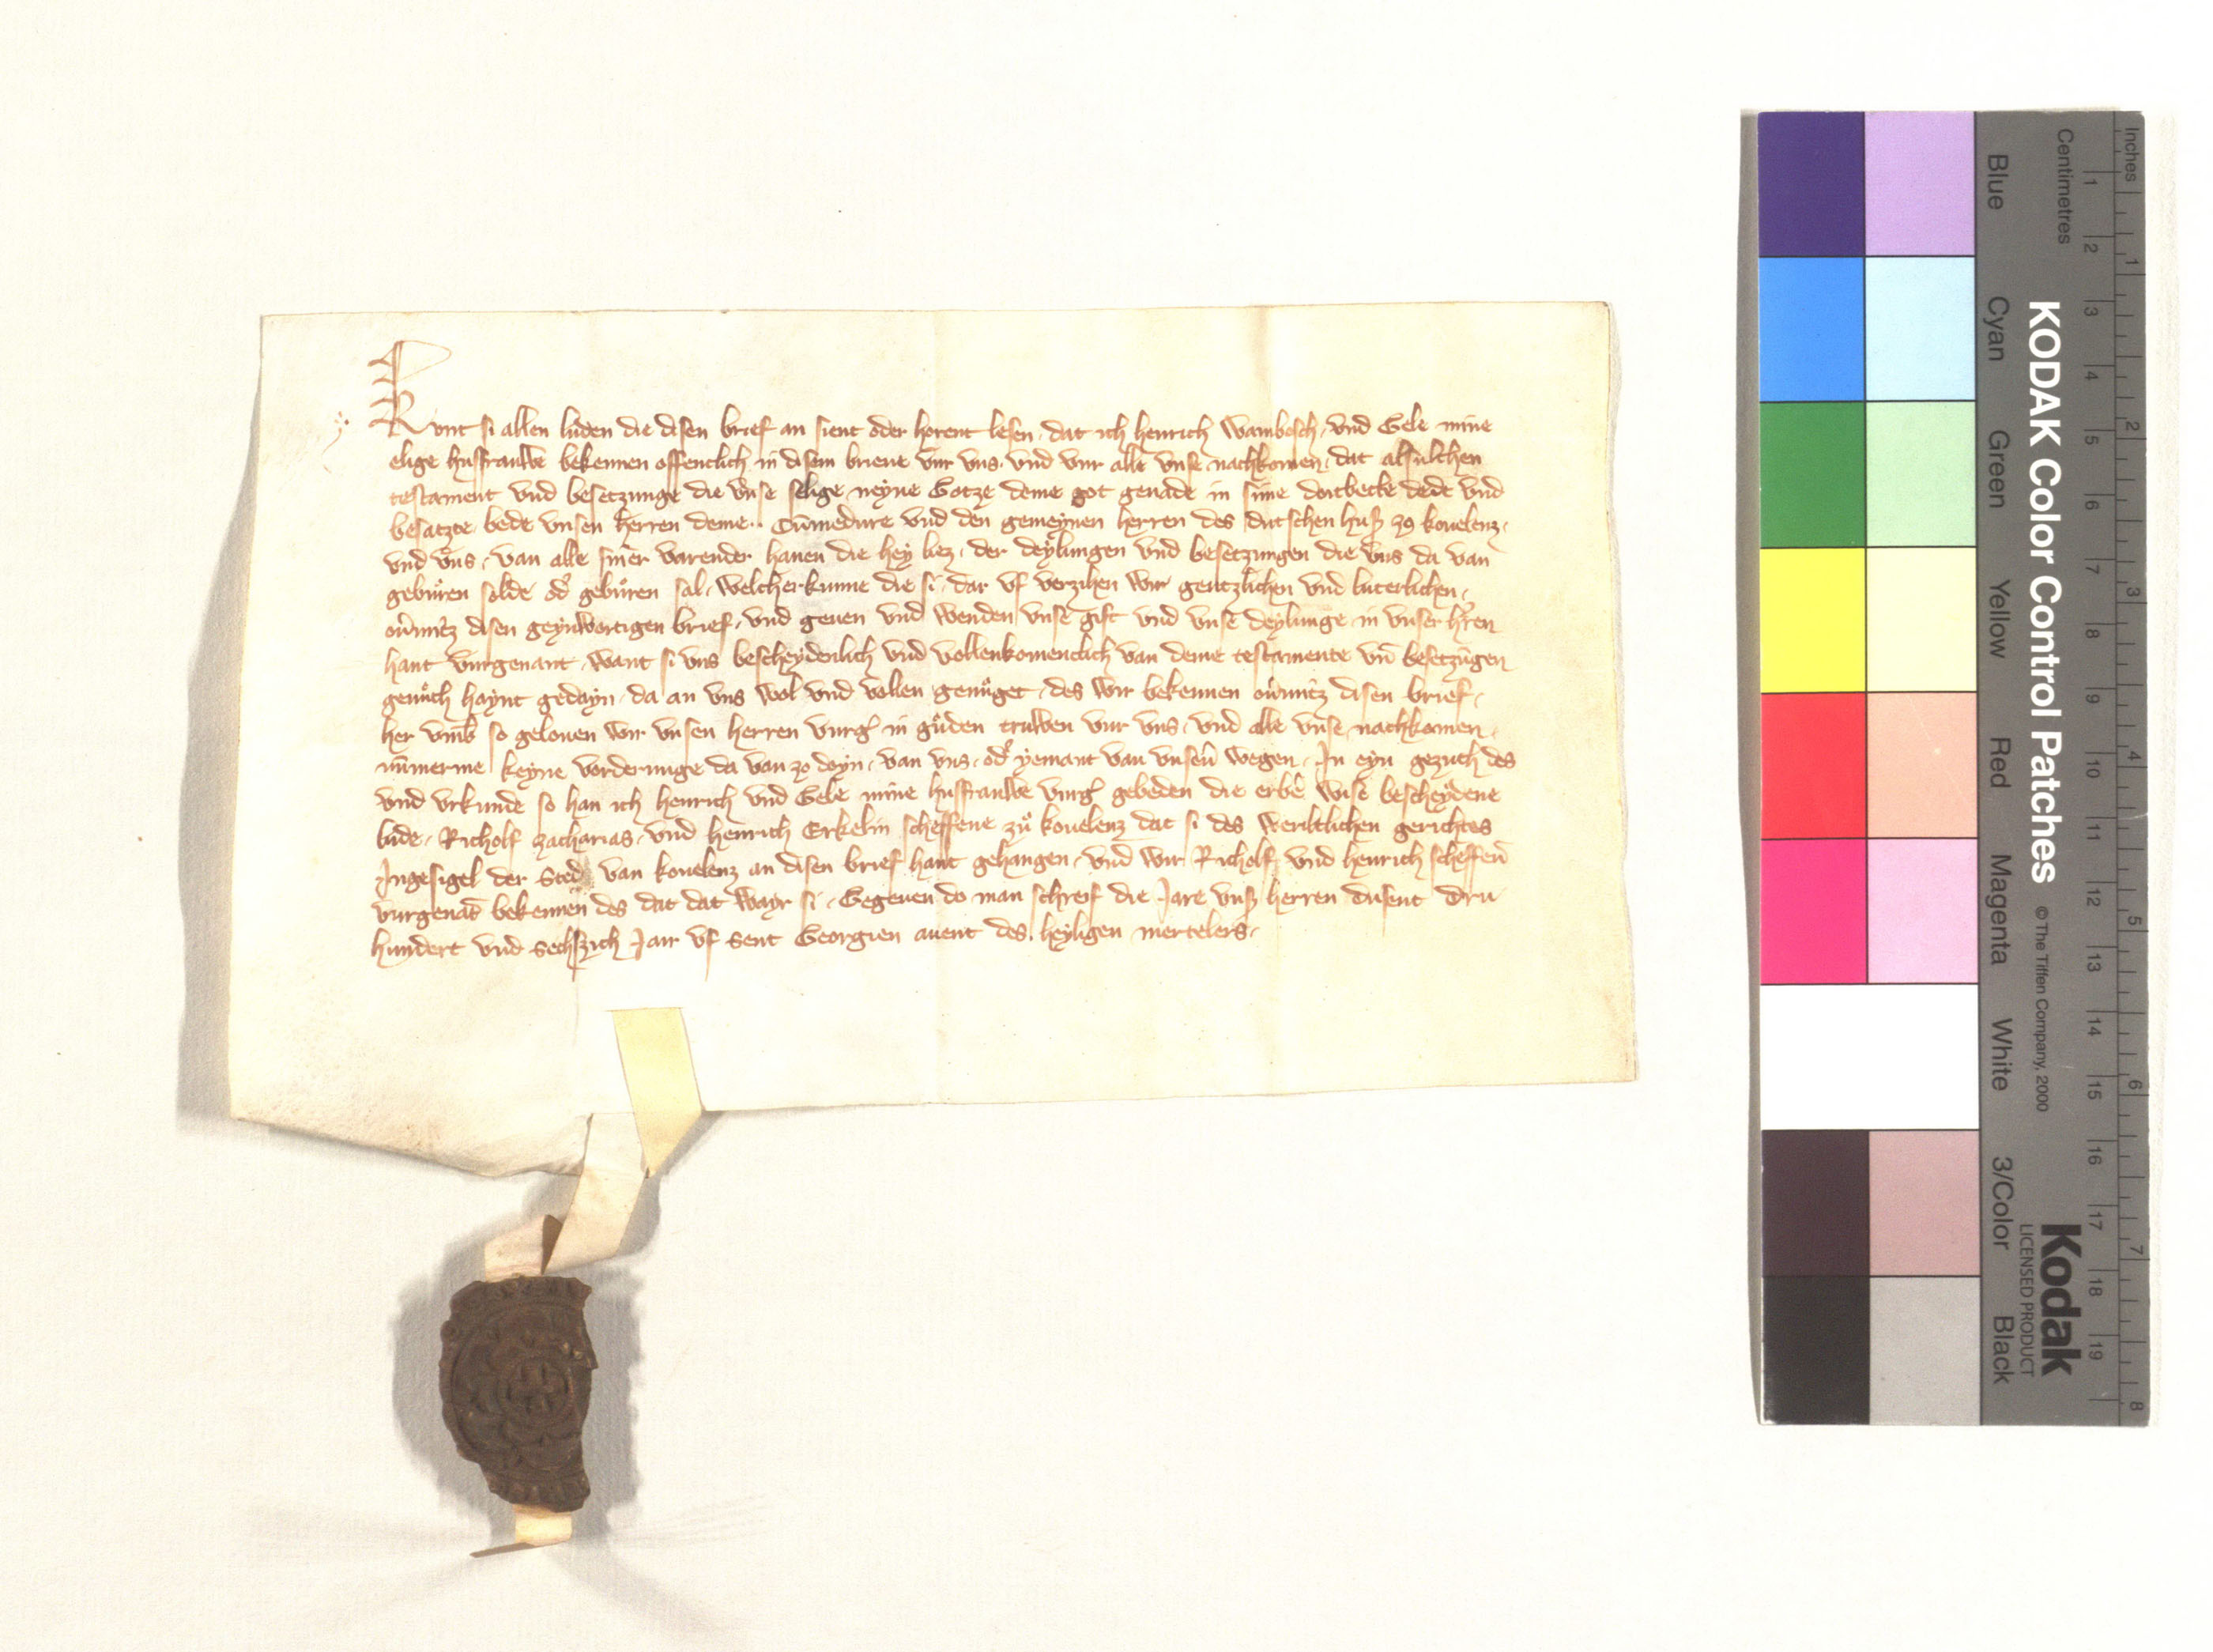 Kvnt si allen luden die disen brief an sient oder horent lesen, dat ich henrich Wambosch, vnd Gele mine
elige husfrauwe bekennen offentlich in disem brieue vur vns, vnd vur alle vnse nachkomen, dat alsulchen
testament vnd besetzunge die vnse selige neyue Gotze deme got genade in sime dotbecke dede vnd
besatzte bede vnsen herren deme .. Cūmedure vnd den gemeynen herren des dutschen huß zo kouelenz,
vnd vns, van alle siner varender hauen die hey liez, der deylungen vnd besetzungen die vns da van
geburen solde od' geburen sal, welcherkunne die si, dar vf verzihen wir gentzlichen vnd luterlichen,
ouermitz disen geynwortigen brief, vnd geuen vnd wenden vnse gift vnd vnse deylunge in vnser h'ren
hant vurgenant, want si vns bescheydenlich vnd vollenkomenclich van deme testamente vn̄ besetzūgen
genuͦch haynt gedayn, da an vns wol vnd vollen genuͦget, des wir bekennen ouermitz disen brief,
her vmb so gelouen wir vnsen herren vurg' in guͦden truwen vur vns, vnd alle vnse nachkomen,
nūmerme keyne vorderunge da van zo doyn, van vns, od' yemant van vnsen wegen, In eyn gezuch des
vnd vrkunde so han ich henrich vnd Gele mine husfrauwe vurg' gebeden die erbe' wise bescheydene
lude, Richolf zacharias, vnd henrich Erkelin scheffene zuͦ kouelenz dat si des werltlichen gerichtes
Ingesigel der sted van kouelenz an disen brief hant gehangen, vnd wir Richolf vnd henrich scheffen̄
vurgenāt bekennen des dat dat wayr si, Gegeuen do man schreif die Jare vnß herren dusent dru
hundert vnd sechszich Jair vf sent Georgien auent des heyligen mertelers,
Inches
Centimetres
1 2 3 4 5 6 7 8
1 2 3 4 5 6 7 8 9 10 11 12 13 14 15 16 17 18 19
KODAK Color Control Patches © The Tiffen Company, 2000
Kodak
LICENSED PRODUCT
Blue Cyan Green Yellow Red Magenta White 3/Color Black